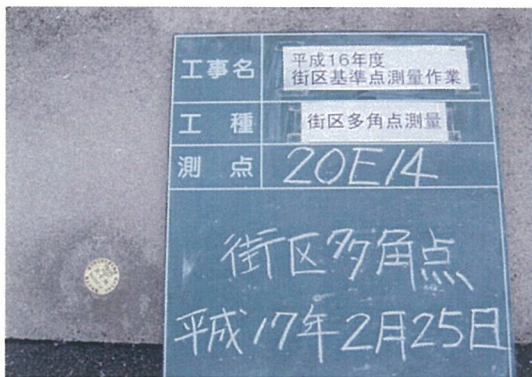 工事名
平成16年度
街区基準点測量作業
工種
街区多角点測量
測点
20E14
街区多角点
平成17年2月25日